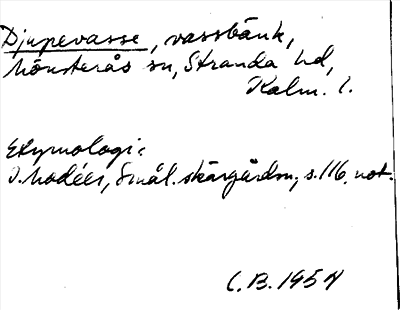 Djupevasse, vassbänk,
Mönsterås sn, Stranda hd,
Kalm. l.
Etymologi:
I. Modéer, Smål. skärgårdsn., s. 116, not.
C.B. 1954